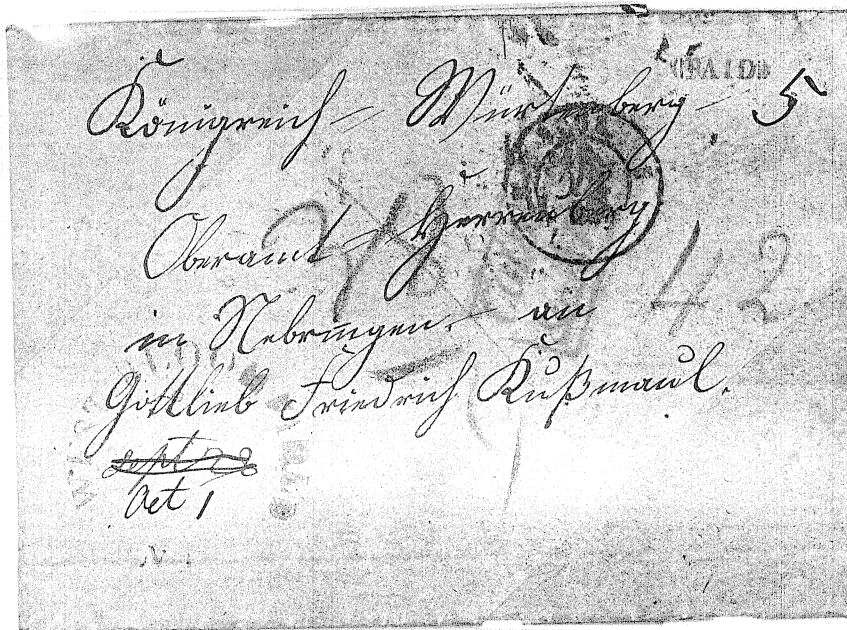 PAID 5
Königreich - Würtemberg -
Oberamt - Herrenberg
42
in Nebringen. - an
Gottlieb Friedrich Kußmaul.
sept 28
Oct 1